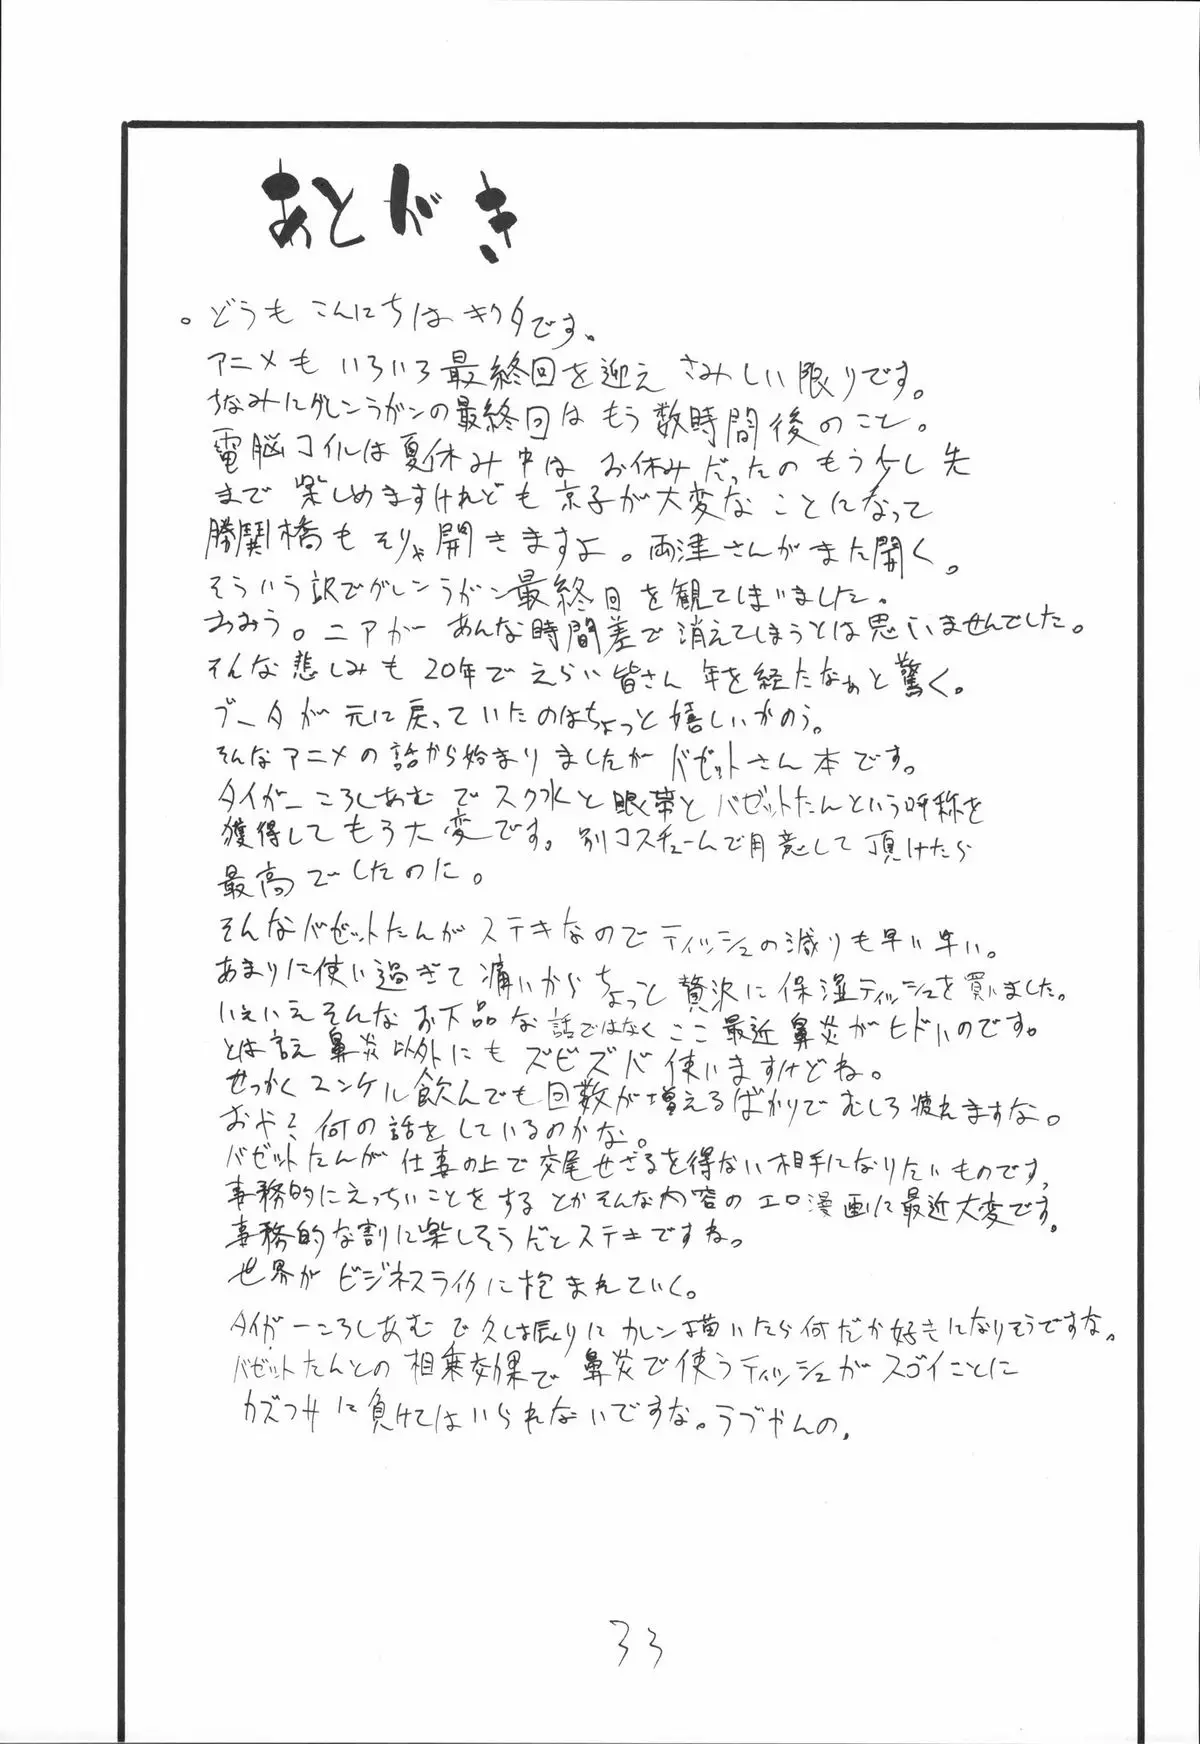 あとがき
。どうも こんにちは キクタです。
アニメも いろいろ最終回を迎え さみしい限りです。
ちなみにグレンラガンの最終回は もう数時間後のこと。
電脳コイルは夏休み中は お休みだったの もう少し先
まで 楽しめますけれども 京子が大変な ことになって
勝鬨橋も そりゃ開きますよ。両津さんがまた開く。
そういう訳でグレンラガン最終回を観てしまいました。
おみう。ニアが あんな時間差で 消えてしまうとは思いませんでした。
そんな悲しみも 20年で えらい皆さん 年を経たなぁと驚く。
ブータが 元に戻っていたのはちょっと嬉しいかのう。
そんなアニメの話から始まりましたが バゼットさん本です。
タイガーころしあむでスク水と眼帯とバゼットたんという呼称を
獲得してもう大変です。別コスチュームで用意して頂けたら
最高でしたのに。
そんなバゼットたんがステキなのでティッシュの減りも早い早い。
あまりに使い過ぎて痛いからちょっと贅沢に保湿ティッシュを買いました。
いえいえそんなお下品な話ではなくここ最近鼻炎がヒドいのです。
とは言え鼻炎以外にもズビズバ使いますけどね。
せっかくユンケル飲んでも回数が増えるばかりでむしろ疲れますな。
おや?何の話をしているのかな。
バゼットたんが仕事の上で交尾せざるを得ない相手になりたいものです、
事務的にえっちいことをするとかそんな内容のエロ漫画に最近大変です。
事務的な割に楽しそうだとステキですね。
世界がビジネスライクに包まれていく。
タイガーころしあむで久し振りにカレン描いたら何だか好きになりそうですな。
バゼットたんとの相乗効果で鼻炎で使うティッシュがスゴイことに
カズフサに負けてはいられないですな。ラブやんの。
33